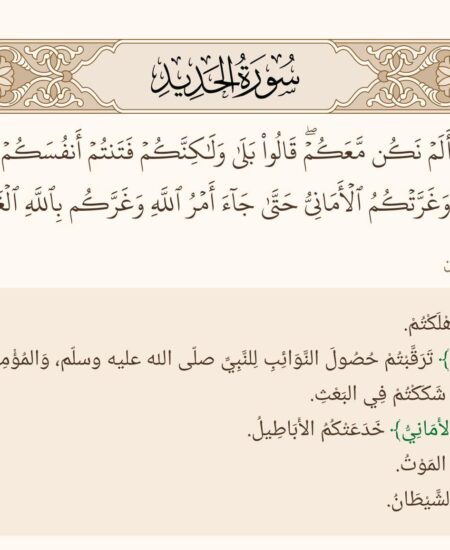 سُورَةُ الحَدِيدِ
أَلَمۡ نَكُن مَّعَكُمۡۖ قَالُواْ بَلَىٰ وَلَٰكِنَّكُمۡ فَتَنتُمۡ أَنفُسَكُمۡ
وَغَرَّتۡكُمُ ٱلۡأَمَانِيُّ حَتَّىٰ جَآءَ أَمۡرُ ٱللَّهِ وَغَرَّكُم بِٱللَّهِ
﴾ تَرَقَّبْتُمْ حُصُولَ النَّوَائِبِ لِلنَّبِيِّ صلّى الله عليه وسلّم، وَالمُؤْمِ
شَكَكْتُمْ فِي البَعْثِ.
لأَمَانِيُّ﴾ خَدَعَتْكُمُ الأَبَاطِيلُ.
المَوْتُ.
لشَّيْطَانُ.